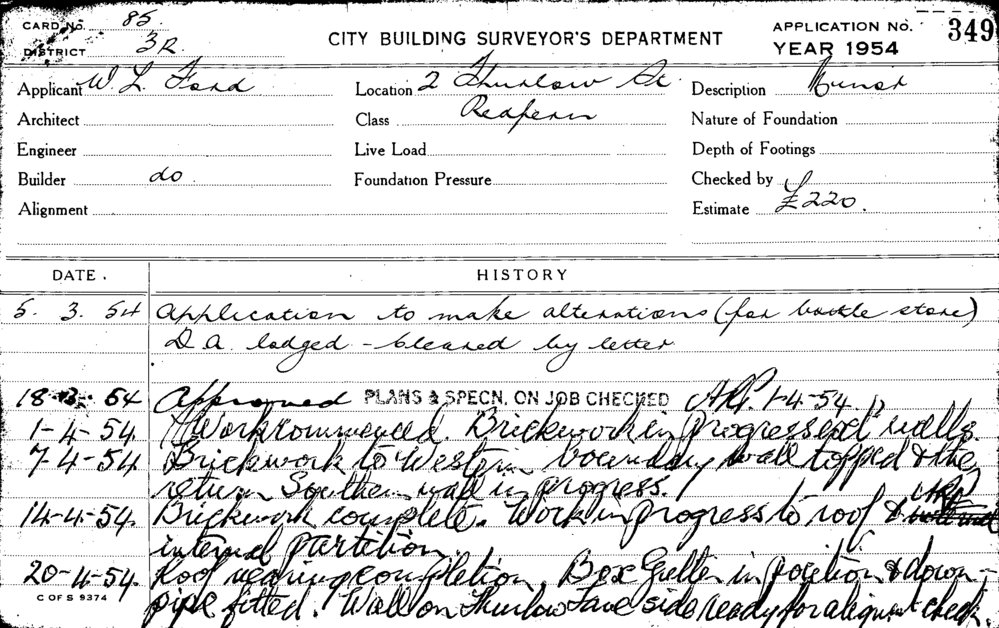 CARD No. 85.
DISTRICT 3R
CITY BUILDING SURVEYOR'S DEPARTMENT
APPLICATION No. 349
YEAR 1954
Applicant W. L. Ford
Location 2 Thurlow St.
Description Minor
Architect
Class Redfern
Nature of Foundation
Engineer
Live Load
Depth of Footings
Builder do
Foundation Pressure
Checked by
Alignment
Estimate £220.
DATE. HISTORY
5. 3. 54 Application to make alterations (for bottle store)
D.A. lodged - cleared by letter
18-3-54 Approved PLANS & SPECN. ON JOB CHECKED 1-4-54.
1-4-54. Work commenced. Brickwork in progress walls.
7-4-54 Brickwork to Western boundary wall topped & the
return Southern wall in progress.
14-4-54. Brickwork complete. Work in progress to roof &
internal partition.
20-4-54. Roof nearing completion. Box Gutter in position & down-
C OF S 9374
pipe fitted. Wall on Thurlow Lane side ready for alignmt check.